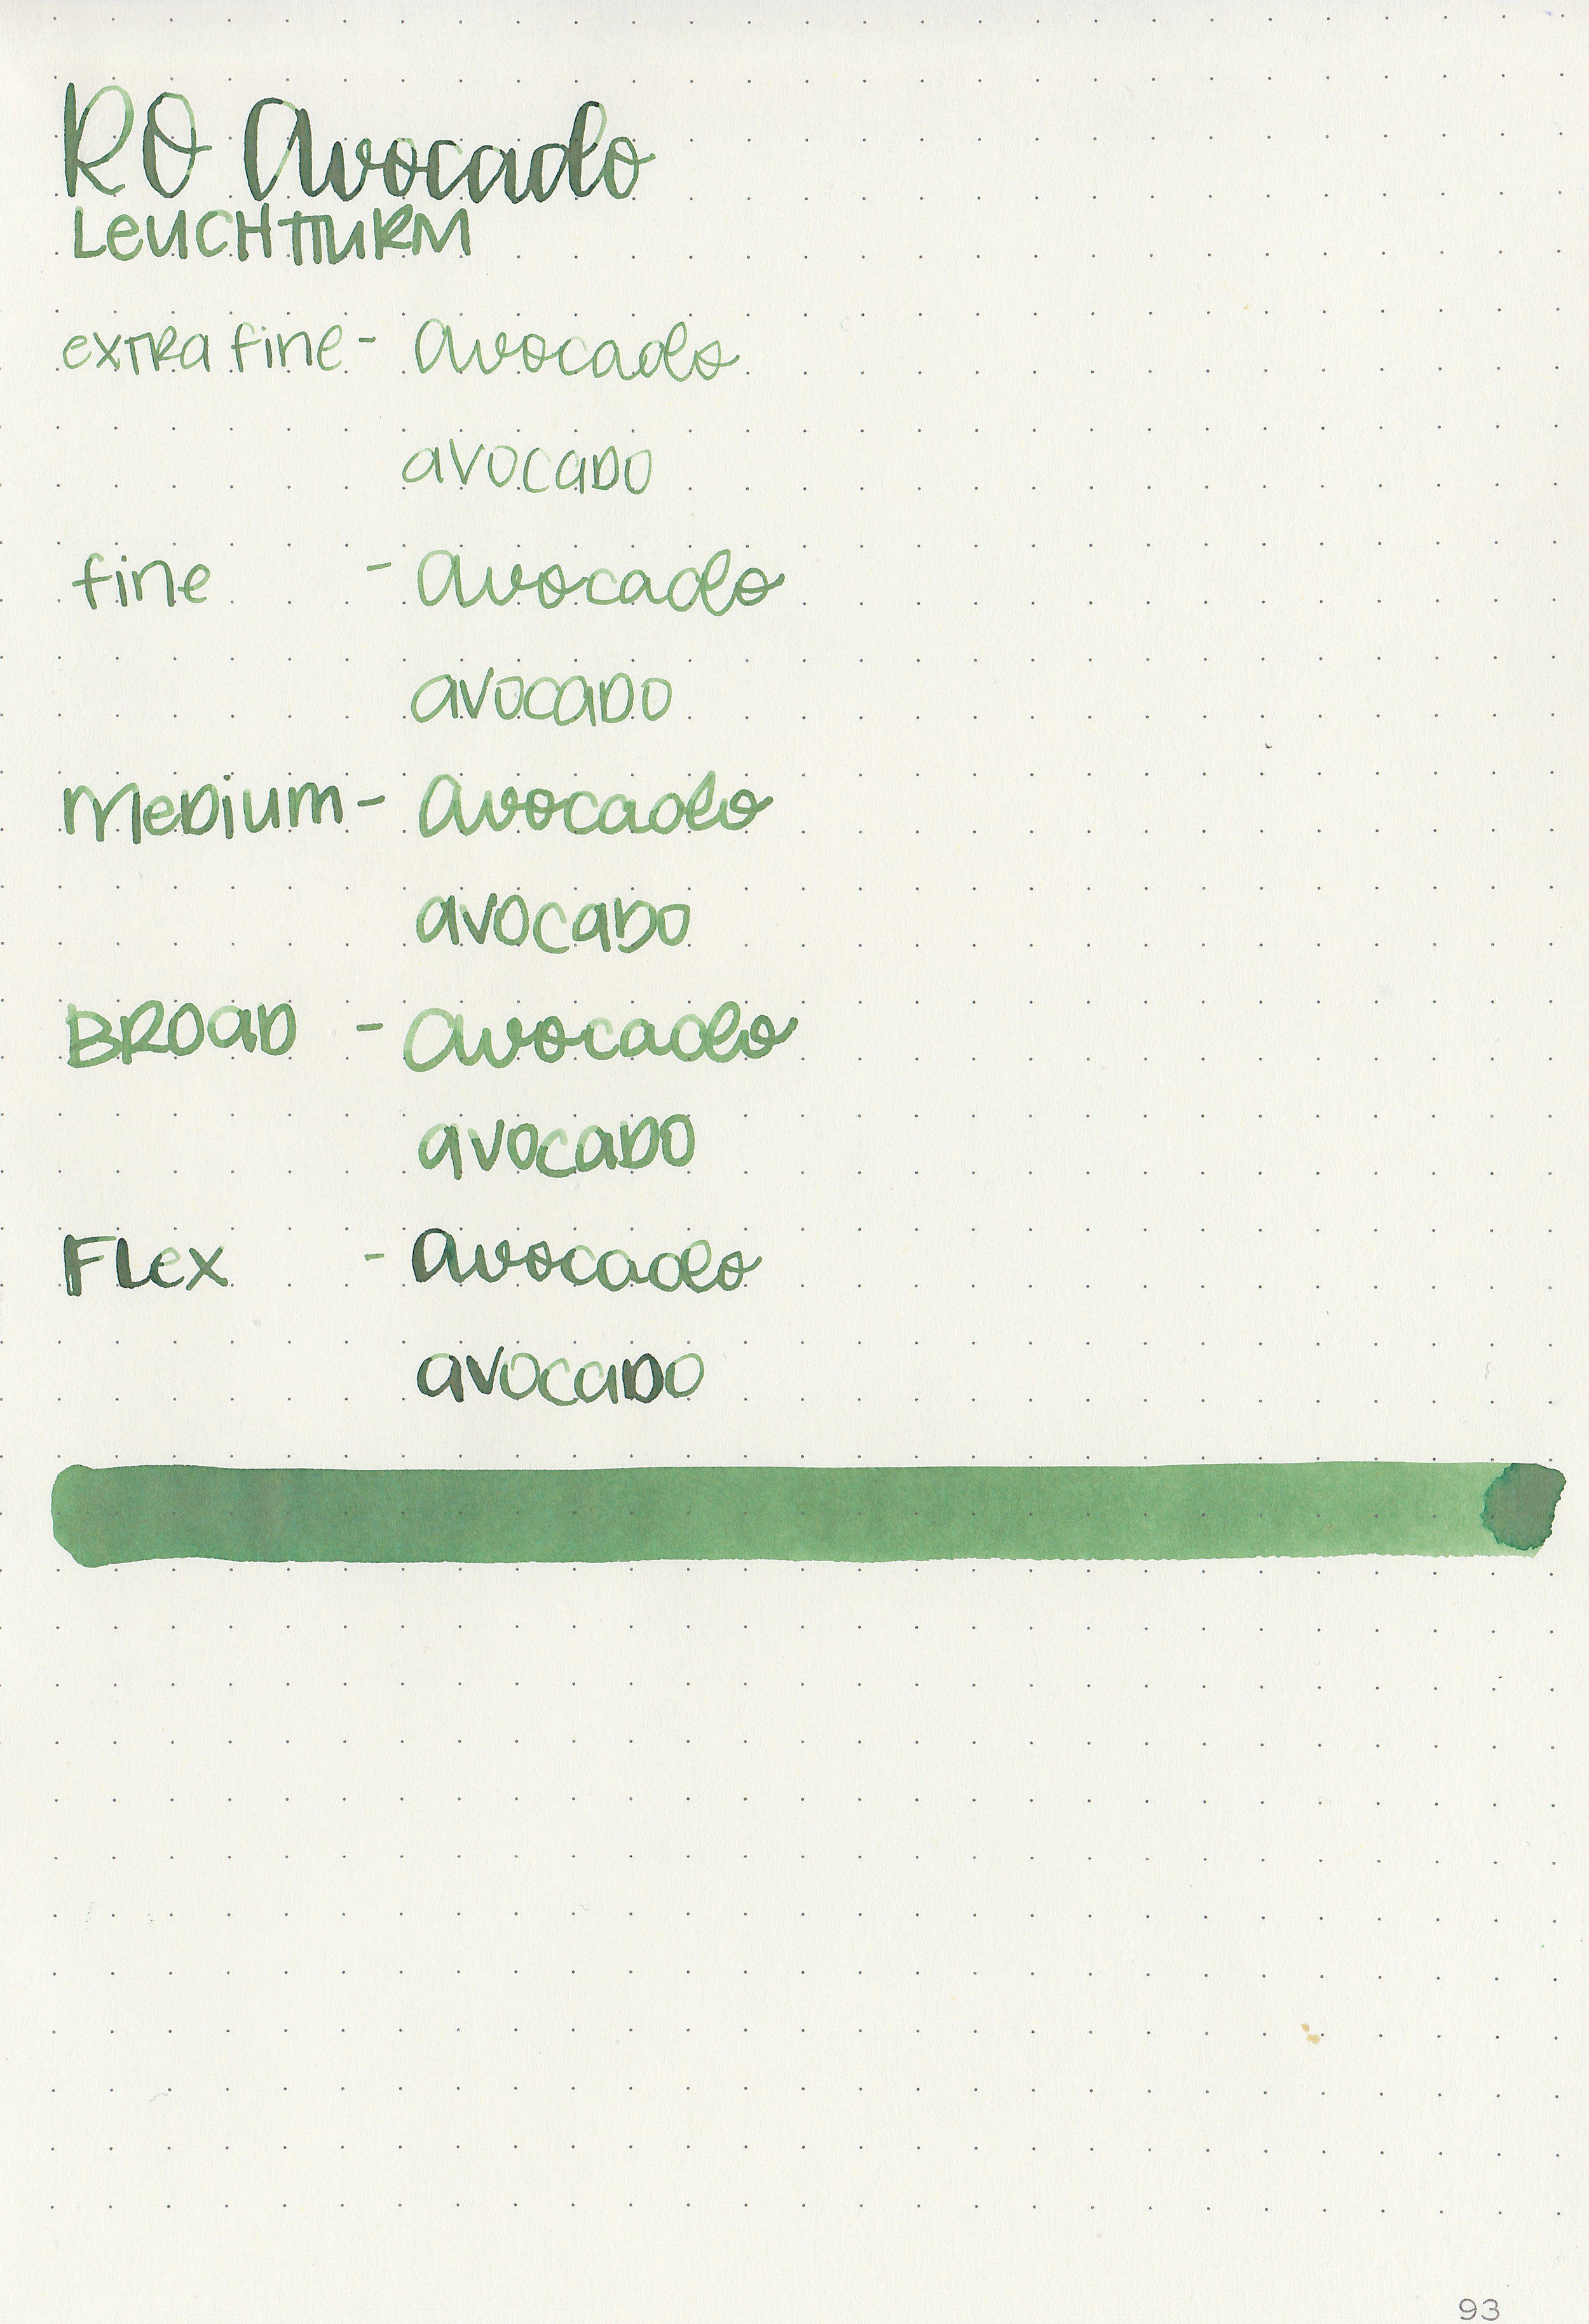 RO Avocado
LEUCHTTURM
extra fine - Avocado
avocado
fine - Avocado
avocado
Medium - Avocado
avocado
BROAD - Avocado
avocado
Flex - Avocado
avocado
93